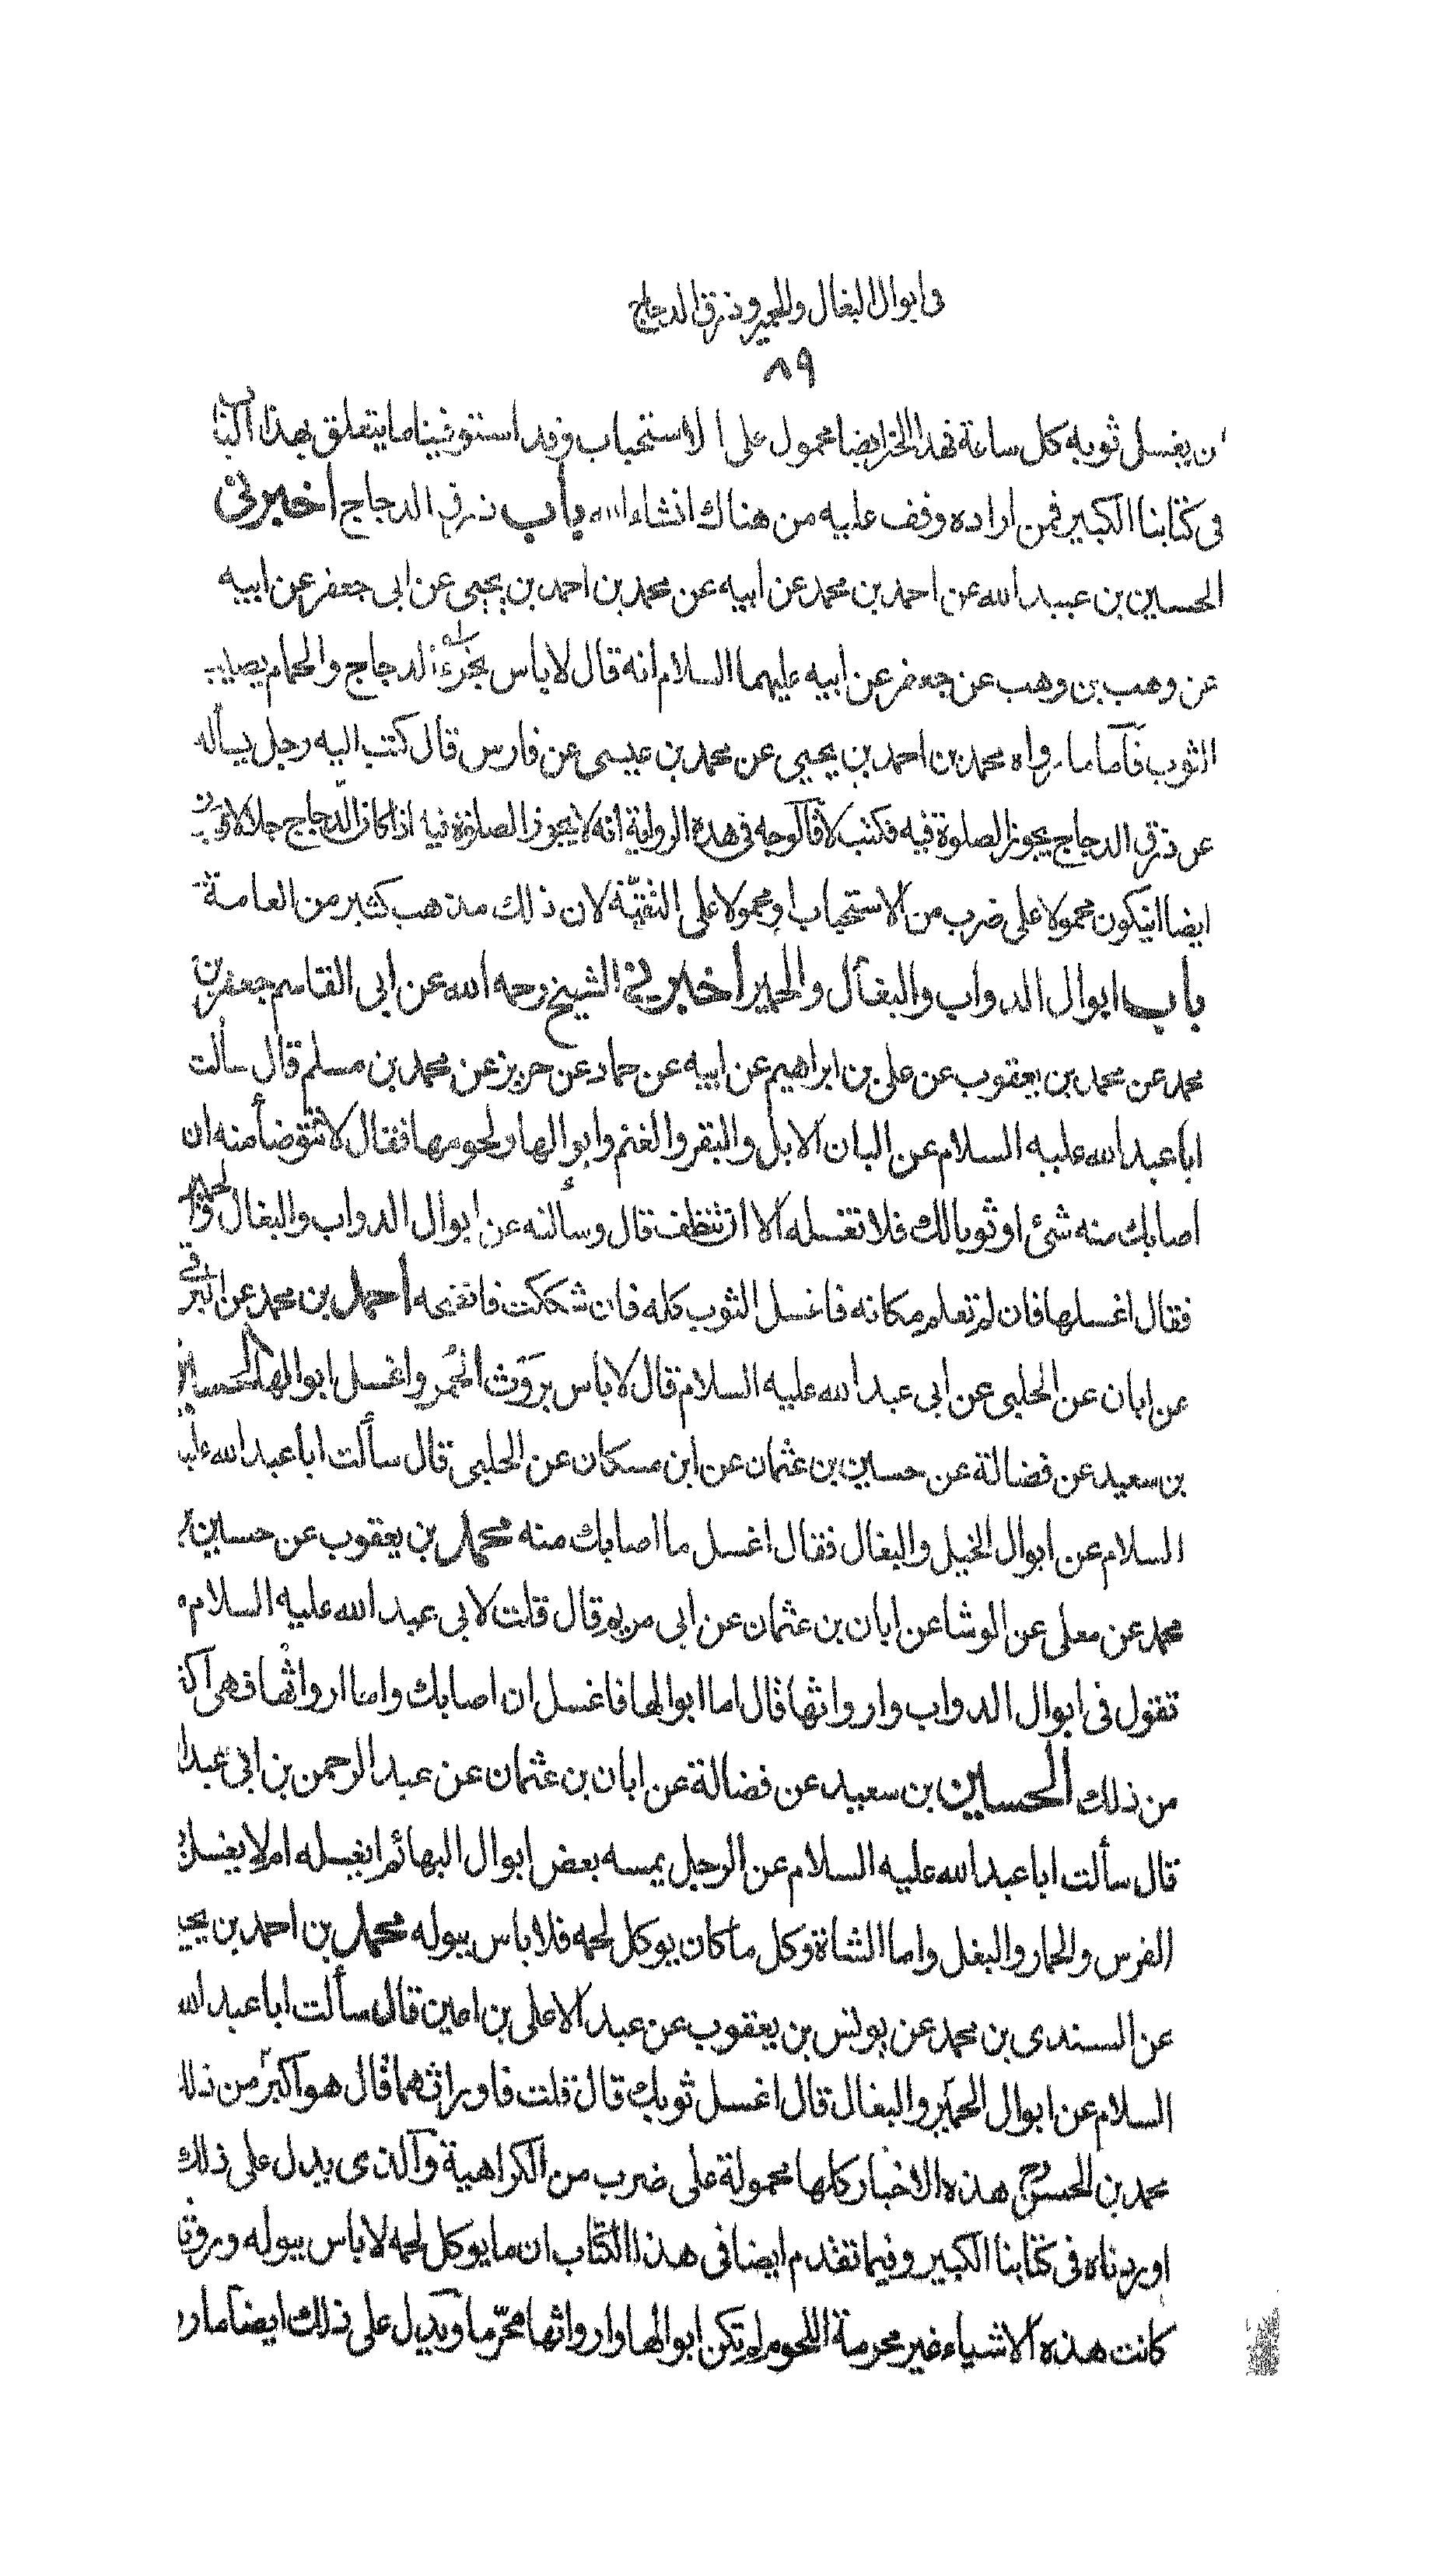 فى ابوال البغال والحمير وذرق الدجاج
٨٩
ن يغسل ثوبه كل ساعة فهذا الخبر ايضا محمول على الاستحباب وقد استوفينا ما يتعلق بهذا الباب
فى كتابنا الكبير فمن اراده وقف عليه من هناك انشاء الله باب ذرق الدجاج اخبرنى
الحسين بن عبيد الله عن احمد بن محمد عن ابيه عن محمد بن احمد بن يحيى عن ابى جعفر عن ابيه
عن وهب بن وهب عن جعفر عن ابيه عليهما السلام انه قال لا باس بخرء الدجاج والحمام يصيب
الثوب فاما ما رواه محمد بن احمد بن يحيى عن محمد بن عيسى عن فارس قال كتب اليه رجل يسأله
عن ذرق الدجاج يجوز الصلوة فيه فكتب لا فالوجه فى هذه الرواية انه لا يجوز الصلوة فيه اذا كان الدجاج جلالا
ايضا ان يكون محمولا على ضرب من الاستحباب او محمولا على التقيّة لان ذلك مذهب كثير من العامة
باب ابوال الدواب والبغال والحمير اخبرنى الشيخ رحمه الله عن ابى القاسم جعفر بن
محمد عن محمد بن يعقوب عن على بن ابراهيم عن ابيه عن حماد عن حريز عن محمد بن مسلم قال سألت
ابا عبد الله عليه السلام عن البان الابل والبقر والغنم وابوالها ولحومها فقال لا تتوضأ منه ان
اصابك منه شئ او ثوبا لك فلا تغسله الا ان تتنظف قال وسألته عن ابوال الدواب والبغال والحمير
فقال اغسلها فان لم تعلم مكانه فاغسل الثوب كله فان شككت فانضحه احمد بن محمد عن البرقى
عن ابان عن الحلبى عن ابى عبد الله عليه السلام قال لا باس بروث الحُمُر واغسل ابوالها الحسين
بن سعيد عن فضالة عن حسين بن عثمان عن ابن مسكان عن الحلبى قال سألت ابا عبد الله عليه
السلام عن ابوال الخيل والبغال فقال اغسل ما اصابك منه محمد بن يعقوب عن حسين بن
محمد عن معلى عن الوشا عن ابان بن عثمان عن ابى مريم قال قلت لابى عبد الله عليه السلام
تقول فى ابوال الدواب وارواثها قال اما ابوالها فاغسل ان اصابك واما ارواثها فهى اكثر
من ذلك الحسين بن سعيد عن فضالة عن ابان بن عثمان عن عبد الرحمن بن ابى عبد
قال سألت ابا عبد الله عليه السلام عن الرجل يمسه بعض ابوال البهائم ايغسله ام لا يغسل
الفرس والحمار والبغل واما الشاة وكل ما كان يوكل لحمه فلا باس ببوله محمد بن احمد بن يحيى
عن السندى بن محمد عن يونس بن يعقوب عن عبد الاعلى بن اعين قال سألت ابا عبد الله
السلام عن ابوال الحمير والبغال قال اغسل ثوبك قال قلت فاوراثهما قال هو اكبر من ذلك
محمد بن الحسن هذه الاخبار كلها محمولة على ضرب من الكراهية والذى يدل على ذلك
اوردناه فى كتابنا الكبير وفيما تقدم ايضا فى هذا الكتاب ان ما يوكل لحمه لا باس ببوله وروثه
كانت هذه الاشياء غير محرمة اللحوم لم تكن ابوالها وارواثها محرّما ويدل على ذلك ايضا ما